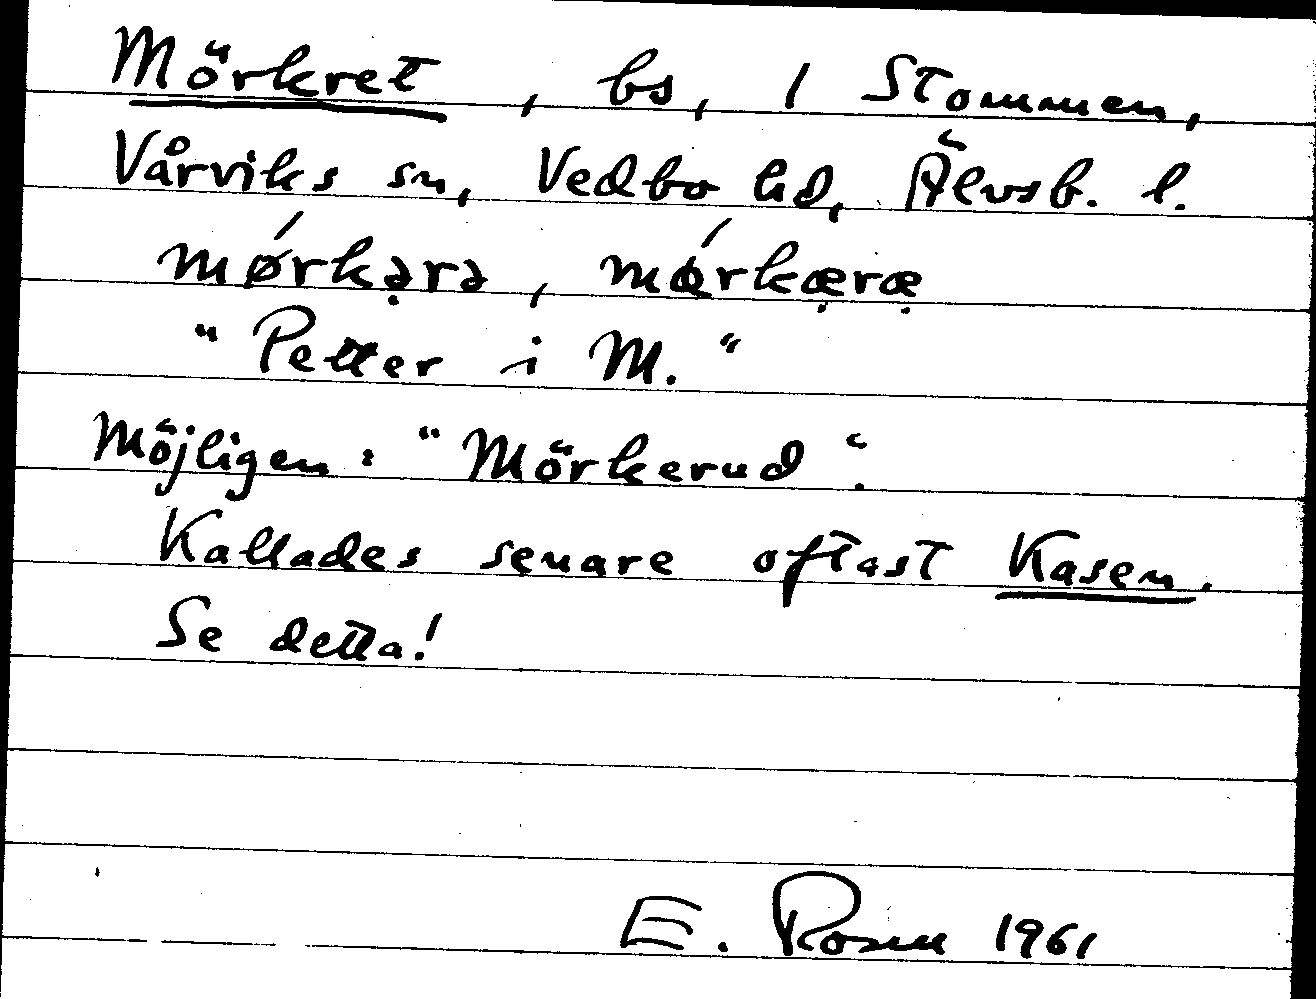 Mörkret, bs, 1 Stommen,
Vårviks sn, Vedbo hd, Älvsb. l.
mǿrkə̣rə, mǿrkæ̣ræ̣
"Petter i M."
Möjligen: "Mörkerud".
Kallades senare oftast Kasen.
Se detta!
E. Rosen 1961